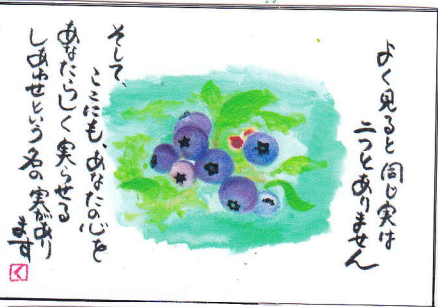 よく見ると同じ実は
二つとありません
そして、
ここにも、あなたの心を
あなたらしく実らせる
しあわせという名の実があり
ます
く